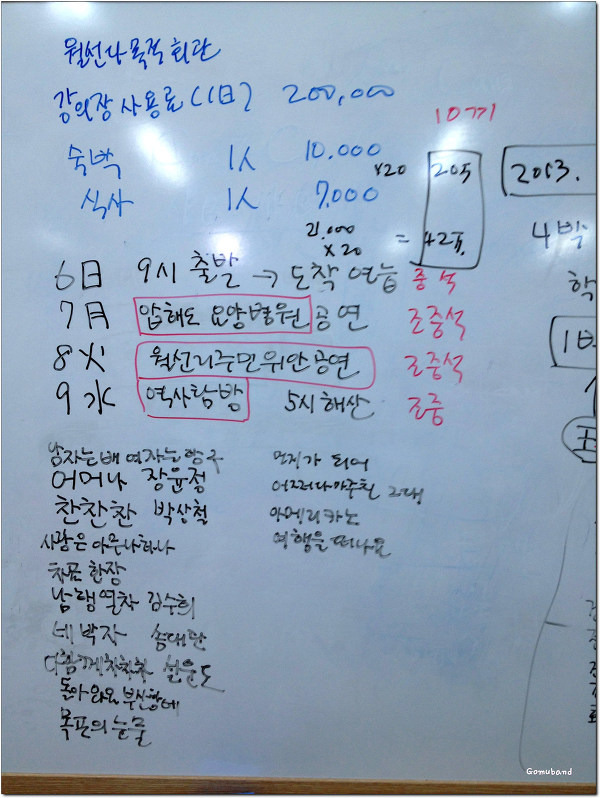 월선다목적회관
강의장 사용료 (1日) 200,000
10끼
숙박 1人 10.000
식사 1人 7.000
×20 205
2013.
21.000
×20 = 42표
4박
6日 9시 출발 → 도착 연습 중석
학
7月 압해도 요양병원 공연 조중석
8火 월선리주민위안공연 조중석
1박
9水 역사탐방 5시 해산 조중
남자는배 여자는항구
어머나 장윤정
찬찬찬 박상철
사랑은 아무나하나
차표 한장
남행열차 김수희
네박자 송대관
다함께차차차 설운도
돌아와요 부산항에
목포의눈물
먼지가 되어
어쩌다마주친 그대
아메리카노
여행을떠나요
Gomuband